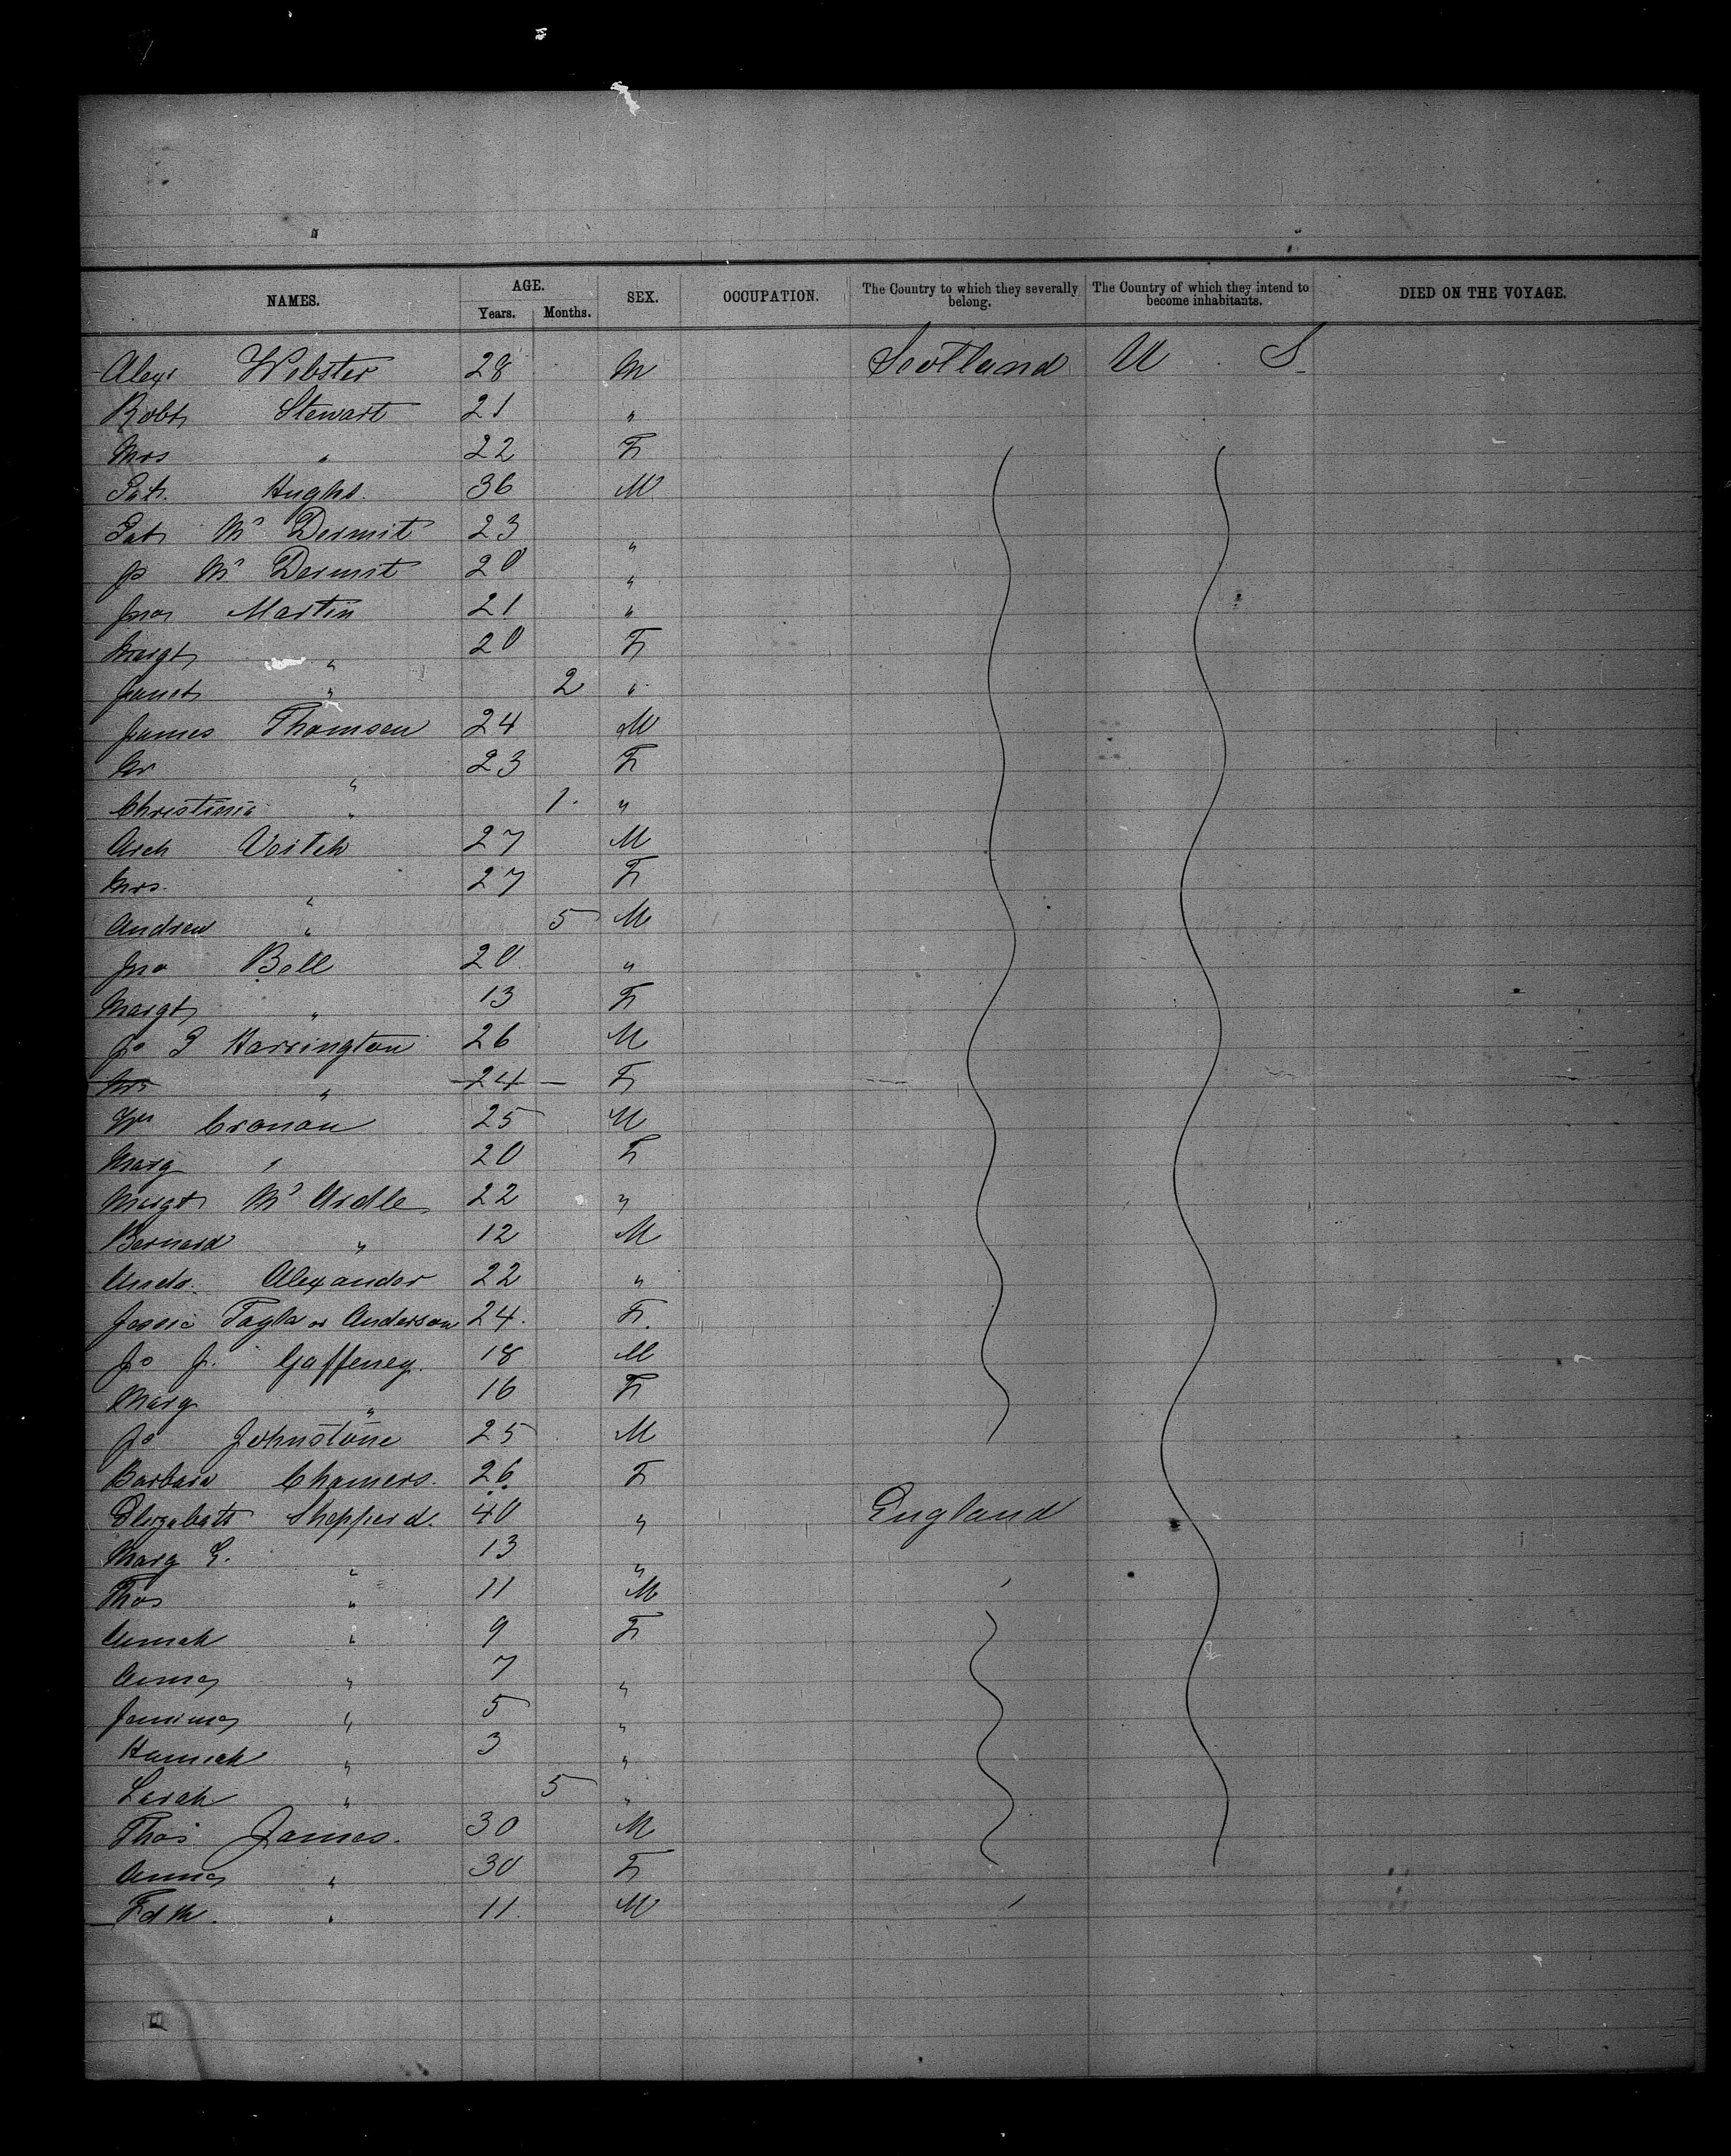 NAMES. AGE. SEX. OCCUPATION. The Country to which they severally belong. The Country of which they intend to become inhabitants. DIED ON THE VOYAGE.
Years. Months.
Alexr Webster 28 M Scotland U S
Robt Stewart 21 "
Mrs " 22 F
Pat. Hughs. 36 M
Pat Mc Dermit 23 "
Jo Mc Dermit 20 "
Jno Martin 21 "
Margt " 20 F
Janet " 2 "
James Thomson 24 M
" 23 F
Christinia " 1. "
Arch Veitch 27 M
Mrs. " 27 F
Andrew " 5 M
Jno Bell 20. "
Margt " 13 F
Jo Harrington 26 M
Mrs " 24 F
Wm Cronan 25 M
Marg " 20 F
Margt Mc Ardle 22 "
Bernard " 12 M
Andr. Alexander 22 "
Jessie or Anderson 24. F.
Jo J. Gaffeney. 18 M
Marg " 16 F
Jo Johnstone 25 M
Barbara Chamers. 26 F
Elizabeth Shepperd. 40 " England
Marg E. " 13 "
Thos " 11 M
" 9 F
Anna " 7 "
Jemima " 5 "
Hannah " 3 "
Sarah " 5 "
Thos James. 30 M
Anna " 30 F
" 11. M